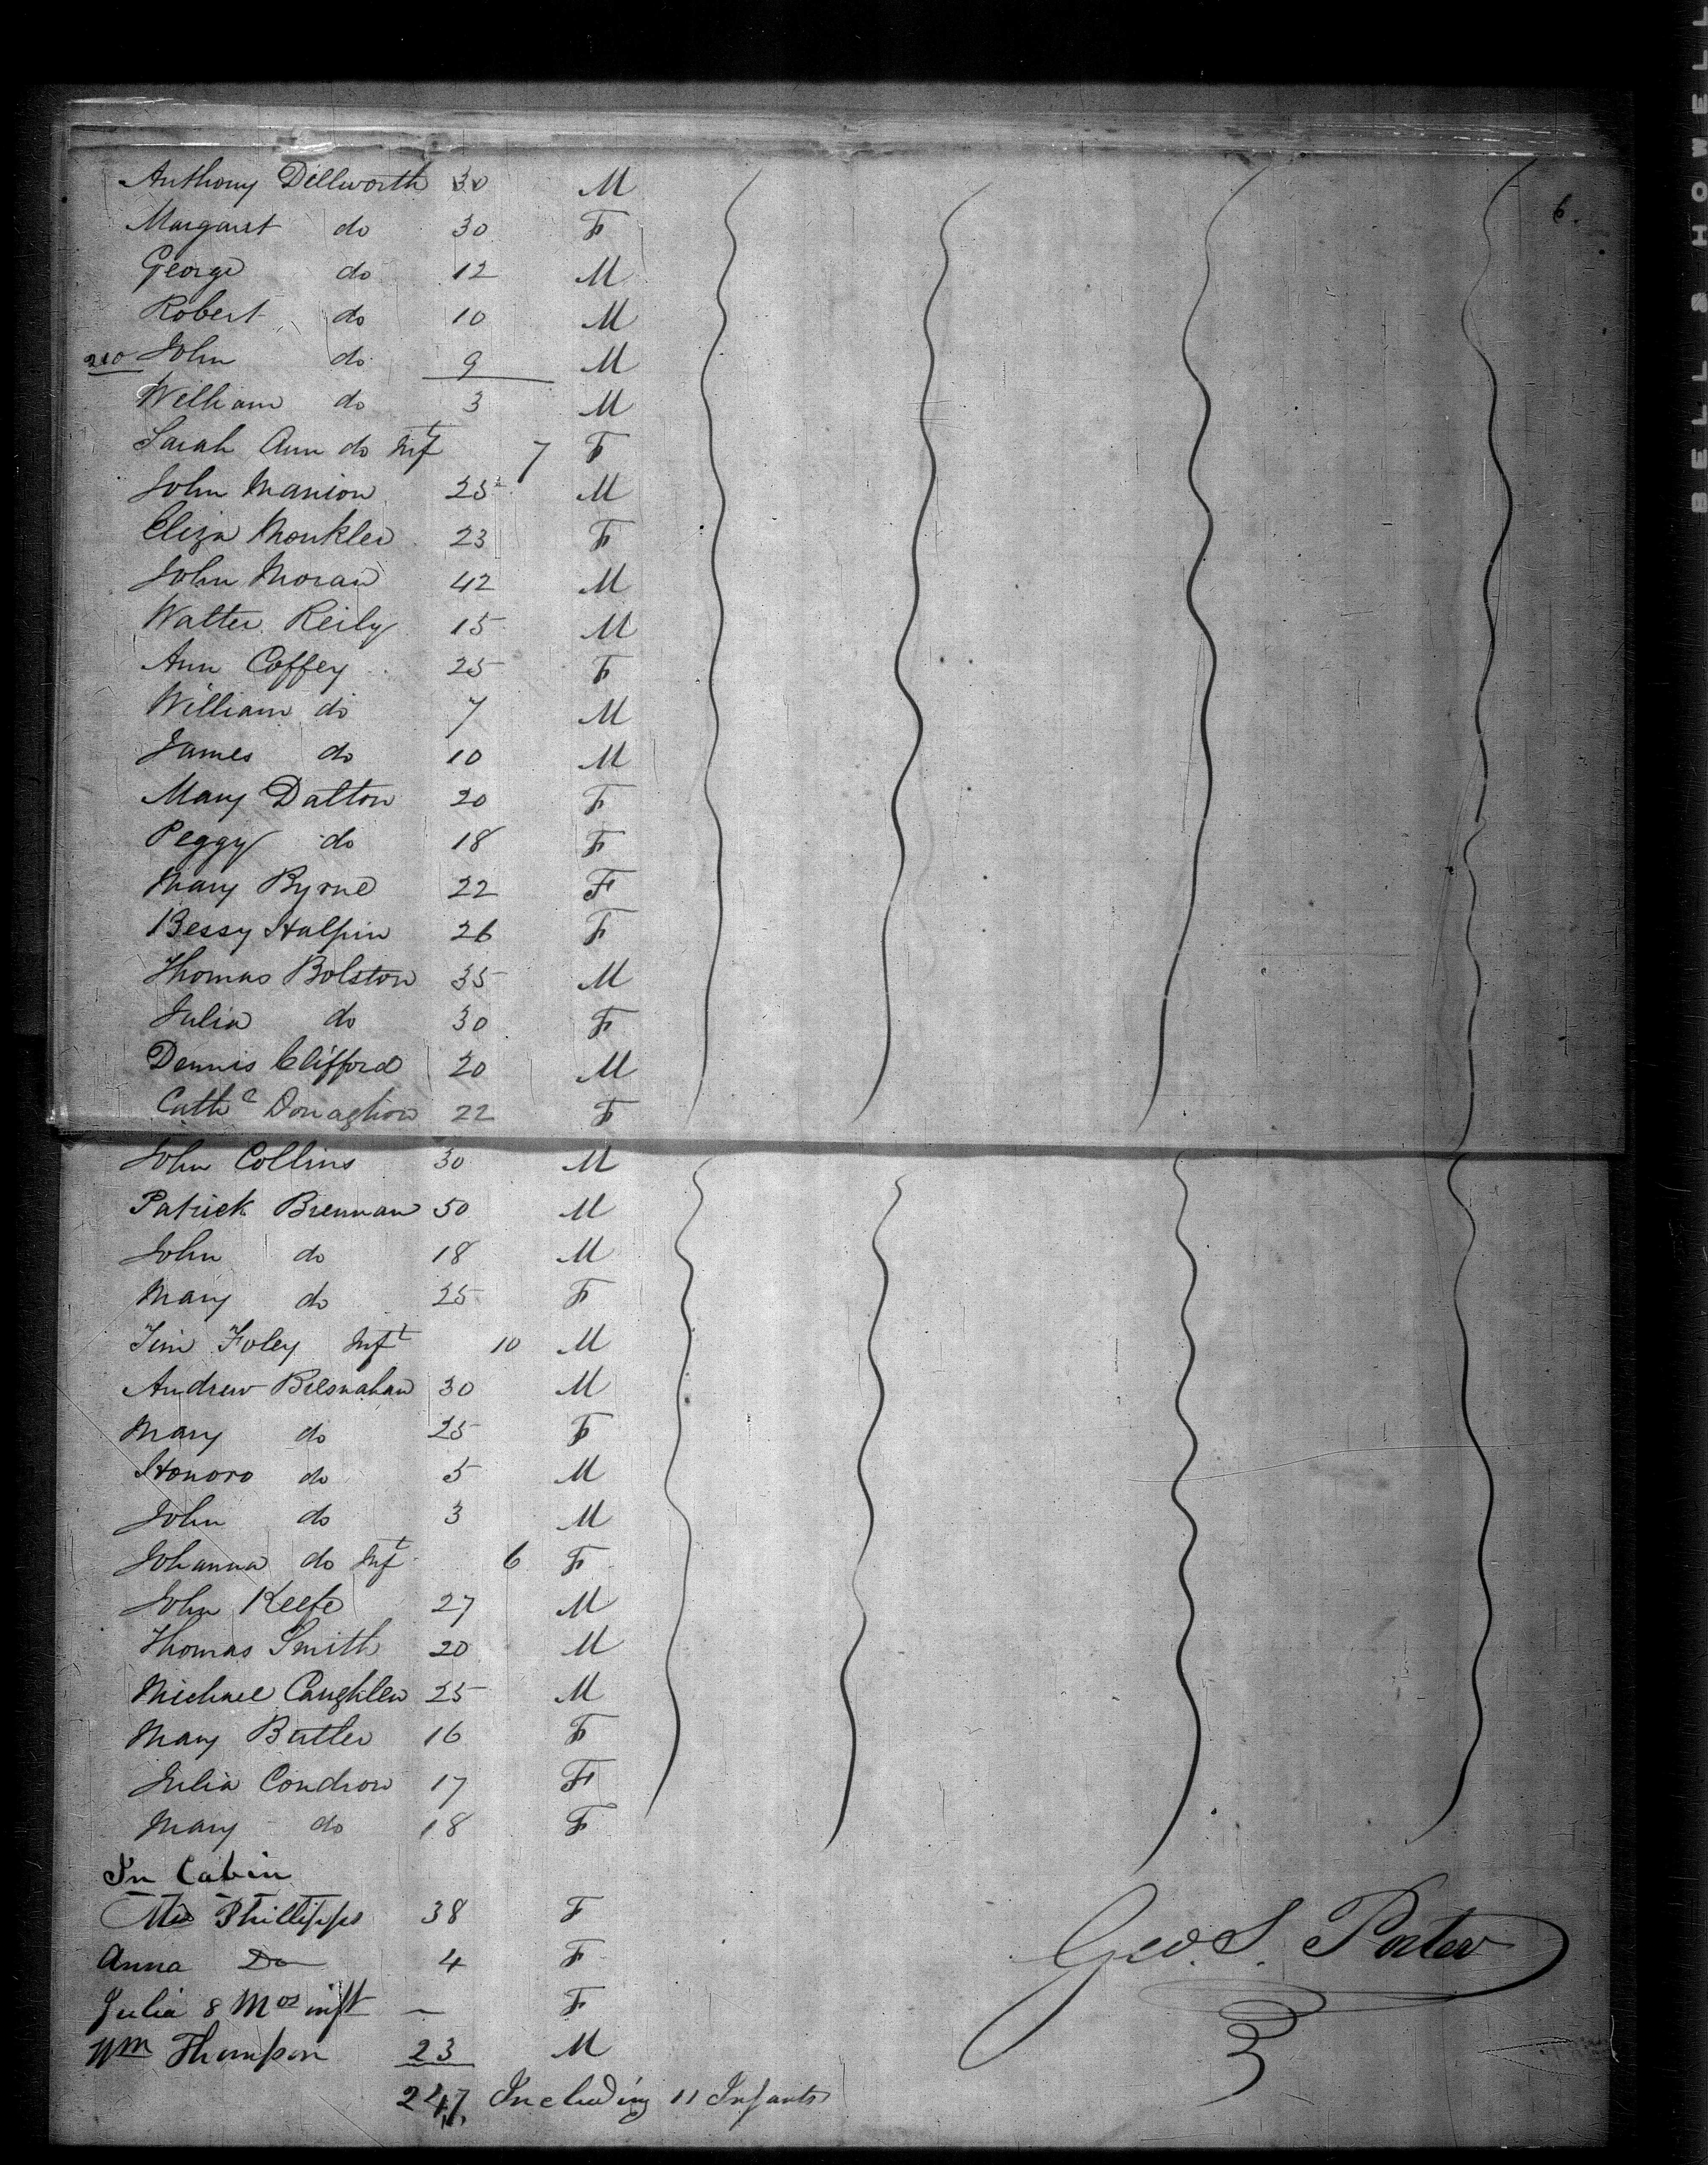 6.
Anthony Dillworth 30 M
Margaret do 30 F
George do 12 M
Robert do 10 M
210 John do 9 M
William do 3 M
Sarah Ann do Inft 7 F
John Manion 25 M
Eliza Monkler 23 F
John Moran 42 M
Walter Reily 15 M
Ann Coffey 25 F
William do 7 M
James do 10 M
Mary Dalton 20 F
Peggy do 18 F
Mary Byrne 22 F
Bessy Halpin 26 F
Thomas Bolston 35 M
Julia do 30 F
Dennis Clifford 20 M
Cathe Donaghon 22 F
John Collins 30 M
Patrick Brennan 50 M
John do 18 M
Mary do 25 F
Tim Foley Inft 10 M
Andrew Bresnahan 30 M
Mary do 25 F
Honoro do 5 M
John do 3 M
Johanna do Inft 6 F
John Keefe 27 M
Thomas Smith 20 M
Michael Caughlen 25 M
Mary Butler 16 F
Julia Condron 17 F
Mary do 18 F
In Cabin
Phillipps 38 F
Anna Do 4 F
Julia 8 Mos inft — F
Wm Thompson 23 M
247 Including 11 Infants
Geo. S. Porter
BELL & HOWELL